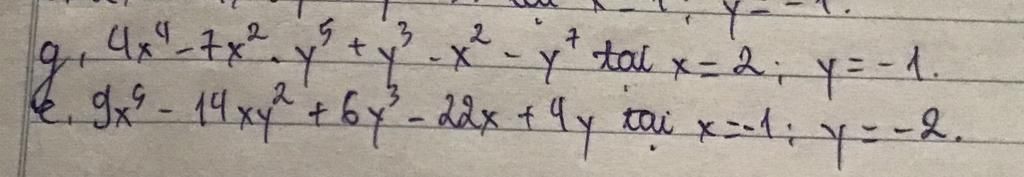 g, 4x⁴ - 7x² . y⁵ + y³ - x² - y⁷ tại x = 2 ; y = -1.
e. 9x⁵ - 14xy² + 6y³ - 22x + 4y tại x = -1 ; y = -2.